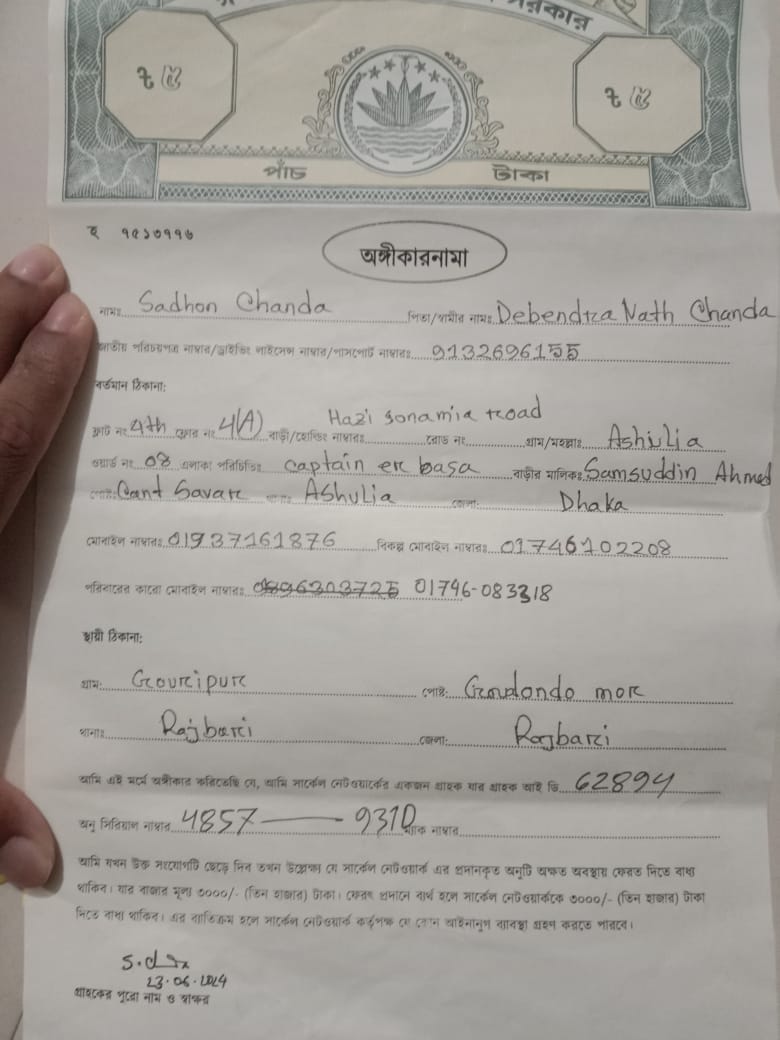 রকার
৳ ৫
৳ ৫
পাঁচ টাকা
ই ৭৫১৩৭৭৬
অঙ্গীকারনামা
নামঃ Sadhon Chanda পিতা/স্বামীর নামঃ Debendra Nath Chanda
জাতীয় পরিচয়পত্র নাম্বার/ড্রাইভিং লাইসেন্স নাম্বার/পাসপোর্ট নাম্বারঃ 9132696155
বর্তমান ঠিকানা:
Hazi sonamia road
ফ্লাট নং 4th ফ্লোর নং 4(A) বাড়ী/হোল্ডিং নাম্বারঃ রোড নং গ্রাম/মহল্লাঃ Ashulia
ওয়ার্ড নং 08 এলাকা পরিচিতিঃ captain er basa বাড়ীর মালিকঃ Samsuddin Ahmed
Cant Savar Ashulia জেলা: Dhaka
মোবাইল নাম্বারঃ 01937161876 বিকল্প মোবাইল নাম্বারঃ 01746102208
পরিবারের কারো মোবাইল নাম্বারঃ 01796-083318
স্থায়ী ঠিকানা:
গ্রাম: Gouripur পোষ্ট: Goalondo mor
থানাঃ Rajbari জেলা: Rajbari
আমি এই মর্মে অঙ্গীকার করিতেছি যে, আমি সার্কেল নেটওয়ার্কের একজন গ্রাহক যার গ্রাহক আই ডি 62894
অনু সিরিয়াল নাম্বার 4857 — 9310 ম্যাক নাম্বার
আমি যখন উক্ত সংযোগটি ছেড়ে দিব তখন উল্লেক্ষ্য যে সার্কেল নেটওয়ার্ক এর প্রদানকৃত অনুটি অক্ষত অবস্থায় ফেরত দিতে বাধ্য
থাকিব। যার বাজার মূল্য ৩০০০/- (তিন হাজার) টাকা। ফেরৎ প্রদানে ব্যর্থ হলে সার্কেল নেটওয়ার্ককে ৩০০০/- (তিন হাজার) টাকা
দিতে বাধ্য থাকিব। এর ব্যতিক্রম হলে সার্কেল নেটওয়ার্ক কর্তৃপক্ষ যে কোন আইনানুগ ব্যবস্থা গ্রহণ করতে পারবে।
23.06.2024
গ্রাহকের পুরো নাম ও স্বাক্ষর